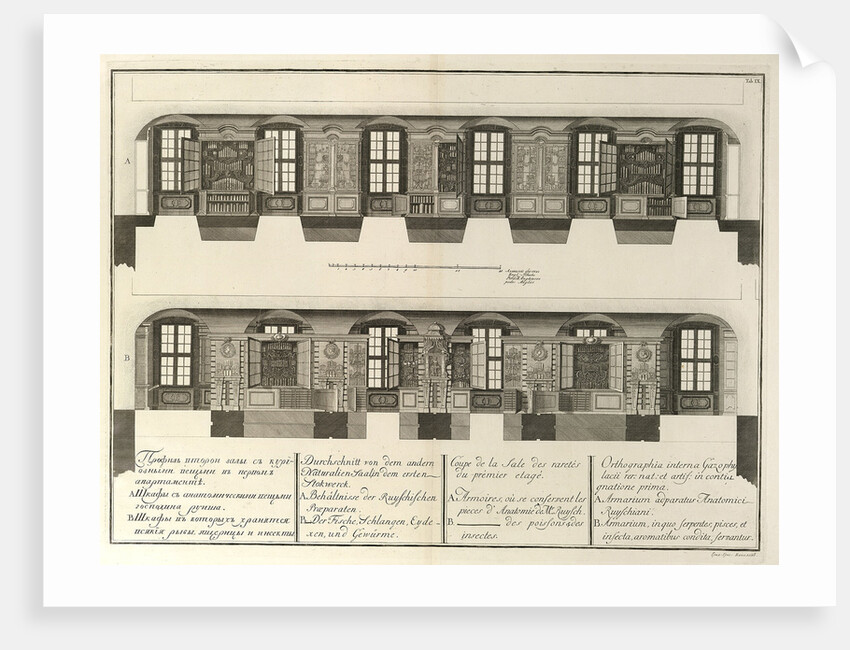 Tab. IX.
A
B
Профиль второи залы съ курі-
озными вещами въ первомъ
апартаментѣ.
A. Шкафы съ анатомическими вещами
господина руиша.
B. Шкафы въ которыхъ хранятся
всякія рыбы, ящерицы и инсекты
Durchschnitt von dem andern
Naturalien Saal in dem ersten
Stokwerck.
A. Behältnisse der Ruyschischen
Præparaten.
B. Der Fische, Schlangen, Eyde-
xen, und Gewürme.
Coupe de la Sale des raretés
du prémier etagé.
A. Armoires, où se conservent les
pieces d'Anatomie de M. Ruysch.
B. des poissons & des
insectes.
Orthographia interna Gazophy-
lacii rer: nat: et artif: in conti-
gnatione prima.
A. Armarium adparatus Anatomici
Ruyschiani.
B. Armarium, in quo serpentes, pisces, et
insecta, aromatibus condita, servantur.